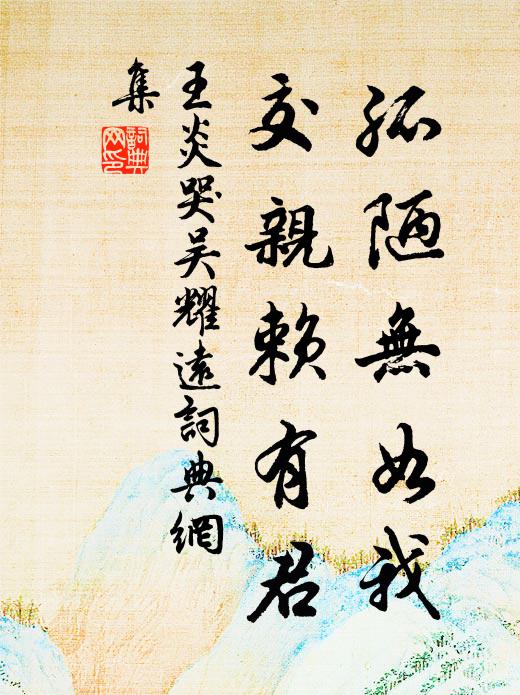 孤陋無如我
交親賴有君
王炎哭吴耀遠詞典網
集
詞典
网印